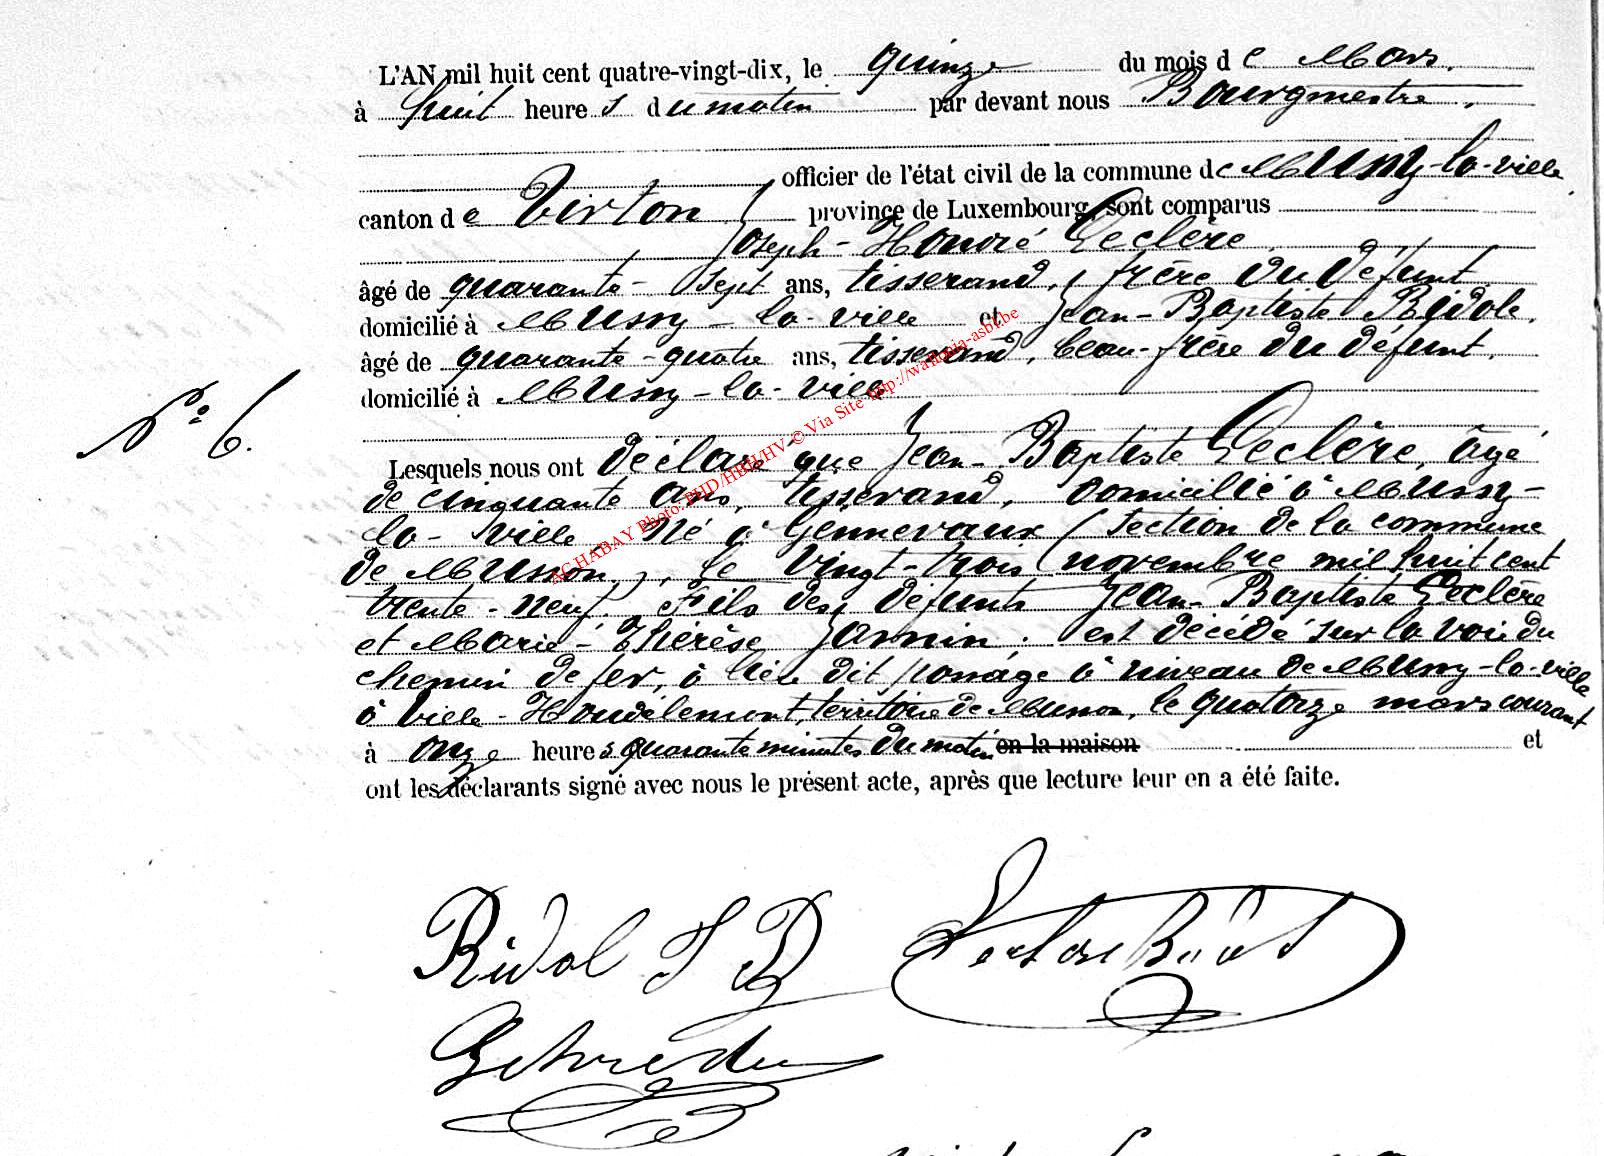 L'AN mil huit cent quatre-vingt-dix, le quinze du mois de Mars.
à huit heures du matin par devant nous Bourgmestre.
officier de l'état civil de la commune de Mussy-la-ville
canton de Virton province de Luxembourg, sont comparus
Joseph-Honoré Leclère,
âgé de quarante-sept ans, tisserand, frère du défunt,
domicilié à Mussy-la-ville et Jean-Baptiste Ridole,
âgé de quarante-quatre ans, tisserand, beau-frère du défunt,
domicilié à Mussy-la-ville
N° 6.
Lesquels nous ont déclaré que Jean-Baptiste Leclère, âgé
de cinquante ans, tisserand, domicilié à Mussy-
la-ville, né à Gennevaux (section de la commune
de Musson), le vingt-trois novembre mil huit cent
trente-neuf, Fils des défunts Jean-Baptiste Leclère
et Marie-Thérèse Jamin, est décédé sur la voie du
chemin de fer, à lieu dit passage à niveau de Mussy-la-ville
à Ville-Houdlémont, territoire de Musson, le quatorze mars courant
à onze heures quarante minutes du matin en la maison et
ont les déclarants signé avec nous le présent acte, après que lecture leur en a été faite.
ACHABAY Photo: PHD/HBH/HV © Via Site http://wallonia-asbl.be
Ridol J B